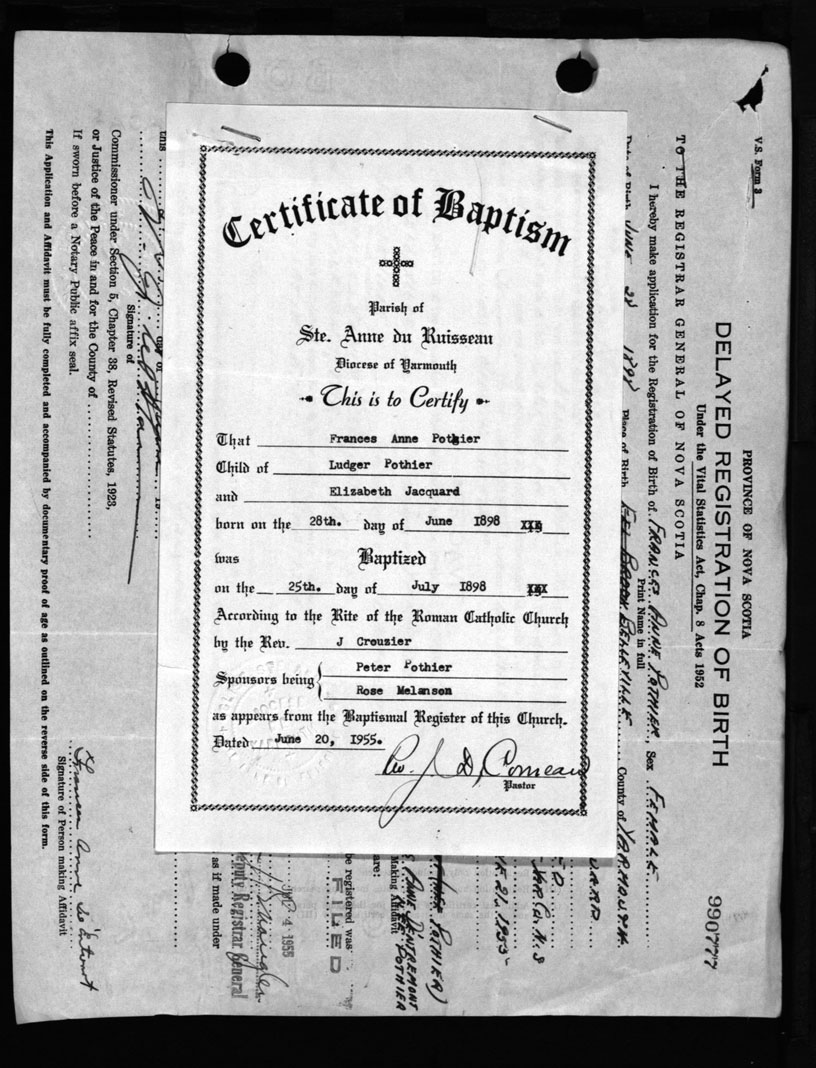 Certificate of Baptism
Parish of
Ste. Anne du Ruisseau
Diocese of Yarmouth
This is to Certify
That Frances Anne Pothier
Child of Ludger Pothier
and Elizabeth Jacquard
born on the 28th. day of June 1898
was Baptized
on the 25th. day of July 1898
According to the Rite of the Roman Catholic Church
by the Rev. J Crouzier
Sponsors being Peter Pothier
Rose Melanson
as appears from the Baptismal Register of this Church.
Dated June 20, 1955.
Rev. J. D. Comeau
Pastor
V.S. Form 3
PROVINCE OF NOVA SCOTIA
DELAYED REGISTRATION OF BIRTH
Under the Vital Statistics Act, Chap. 8 Acts 1952
990777
TO THE REGISTRAR GENERAL OF NOVA SCOTIA
I hereby make application for the Registration of Birth of FRANCES ANNE POTHIER, Sex FEMALE
Print Name in full
Date of Birth JUNE 28 1898 Place of Birth EEL BROOK BELLEVILLE County of YARMOUTH
YAR. Co. N.S
E 21, 1955
(NEE POTHIER)
ANNE D'ENTREMONT
Making Affidavit
NEE POTHIER
are:
be registered was
FILED
4 1955
Deputy Registrar General
as if made under
this day of
Signature of
Commissioner under Section 5, Chapter 38, Revised Statutes, 1923,
or Justice of the Peace in and for the County of
If sworn before a Notary Public affix seal.
Frances Anne d'Entremont
Signature of Person making Affidavit
This Application and Affidavit must be fully completed and accompanied by documentary proof of age as outlined on the reverse side of this form.